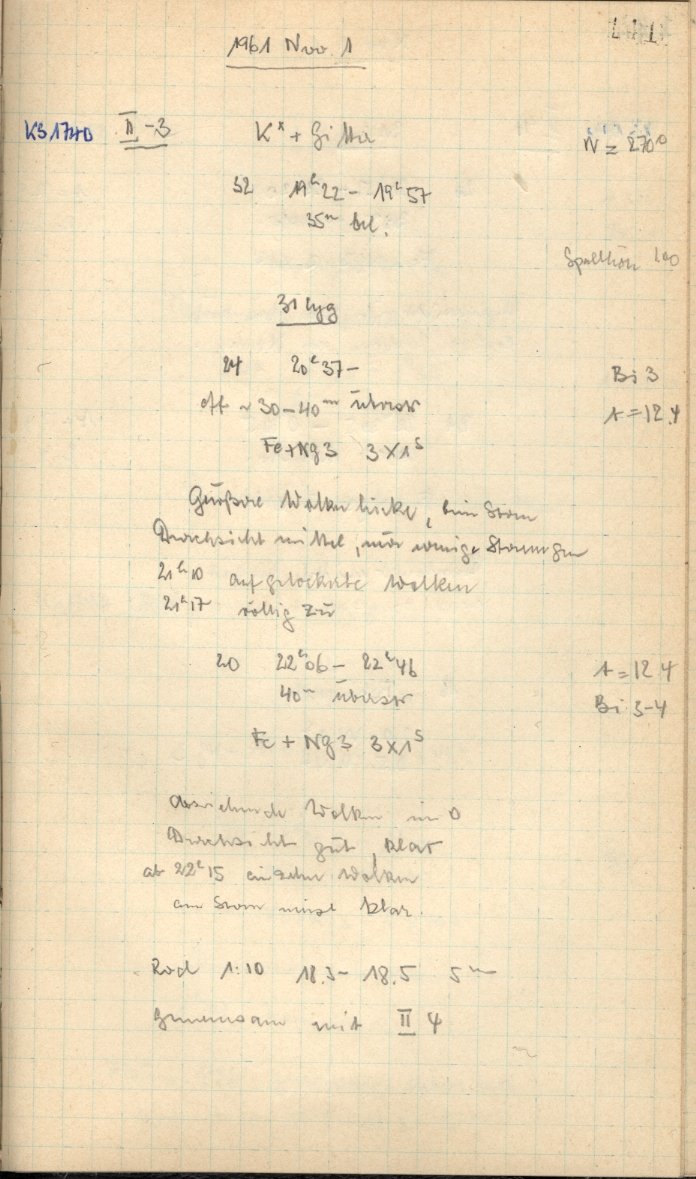 1961 Nov. 1
KS 1740 II-3 K* + Gitter N = 270°
32 19h22 - 19h57
35m bel.
Spalthöhe 100
31 Cyg
24 20h37 - Bi 3
oft ~ 30-40m übersr A = 12.4
Fe + Ng3 3x1s
Größere Wolkenlücke, beim Stern
Durchsicht mittel, nur wenige Störungen
21h10 aufgelockerte Wolken
21h17 völlig zu
20 22h06 - 22h46 A = 12.4
40m übersr Bi 3-4
Fe + Ng3 3x1s
abziehende Wolken im O
Durchsicht gut, klar
ab 22h15 einzelne Wolken
am Stern meist klar.
Rod 1:10 18.3 - 18.5 5m
Gemeinsam mit II 4